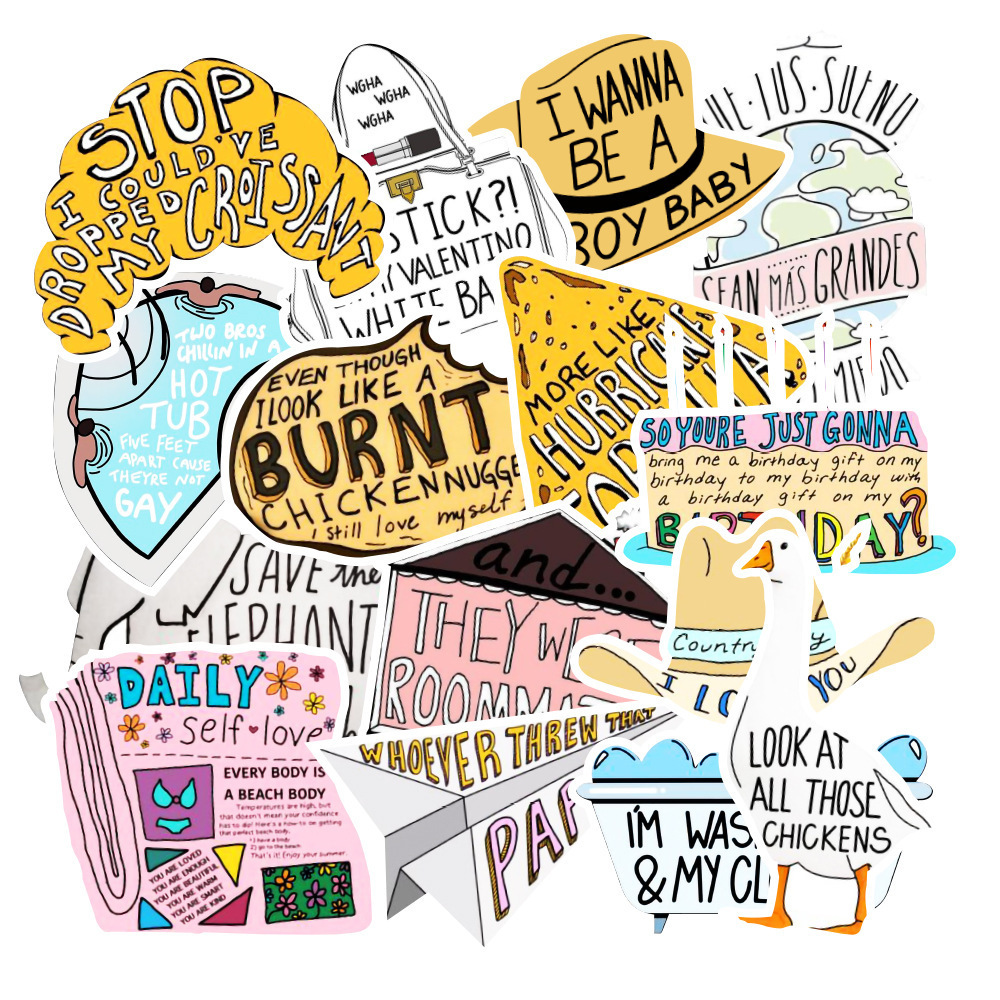 STOP
I COULD'VE
DROPPED
MY CROISSANT
WGHA
WGHA
WGHA
STICK?!
VALENTINO
WHITE BA
I WANNA
BE A
BOY BABY
TUS SUEÑO
SEAN MÁS GRANDES
TWO BROS
CHILLIN IN A
HOT
TUB
FIVE FEET
APART CAUSE
THEYRE NOT
GAY
EVEN THOUGH
I LOOK LIKE A
BURNT
CHICKEN NUGGE
i still love myself
MORE LIKE
HURRICANE
SO YOURE JUST GONNA
bring me a birthday gift on my
birthday to my birthday with
a birthday gift on my
BIRTHDAY?
SAVE the
ELEPHANT
and...
THEY WERE
ROOMMAT
Country
I LO YOU
DAILY
self love
EVERY BODY IS
A BEACH BODY
Temperatures are high, but
that doesn't mean your confidence
has to do! Here's a how-to on getting
that perfect beach body.
1) have a body
2) go to the beach
That's it! Enjoy your summer.
YOU ARE LOVED
YOU ARE ENOUGH
YOU ARE BEAUTIFUL
YOU ARE WARM
YOU ARE SMART
YOU ARE KIND
WHOEVER THREW THAT
PAP
I'M WAS
& MY CL
LOOK AT
ALL THOSE
CHICKENS